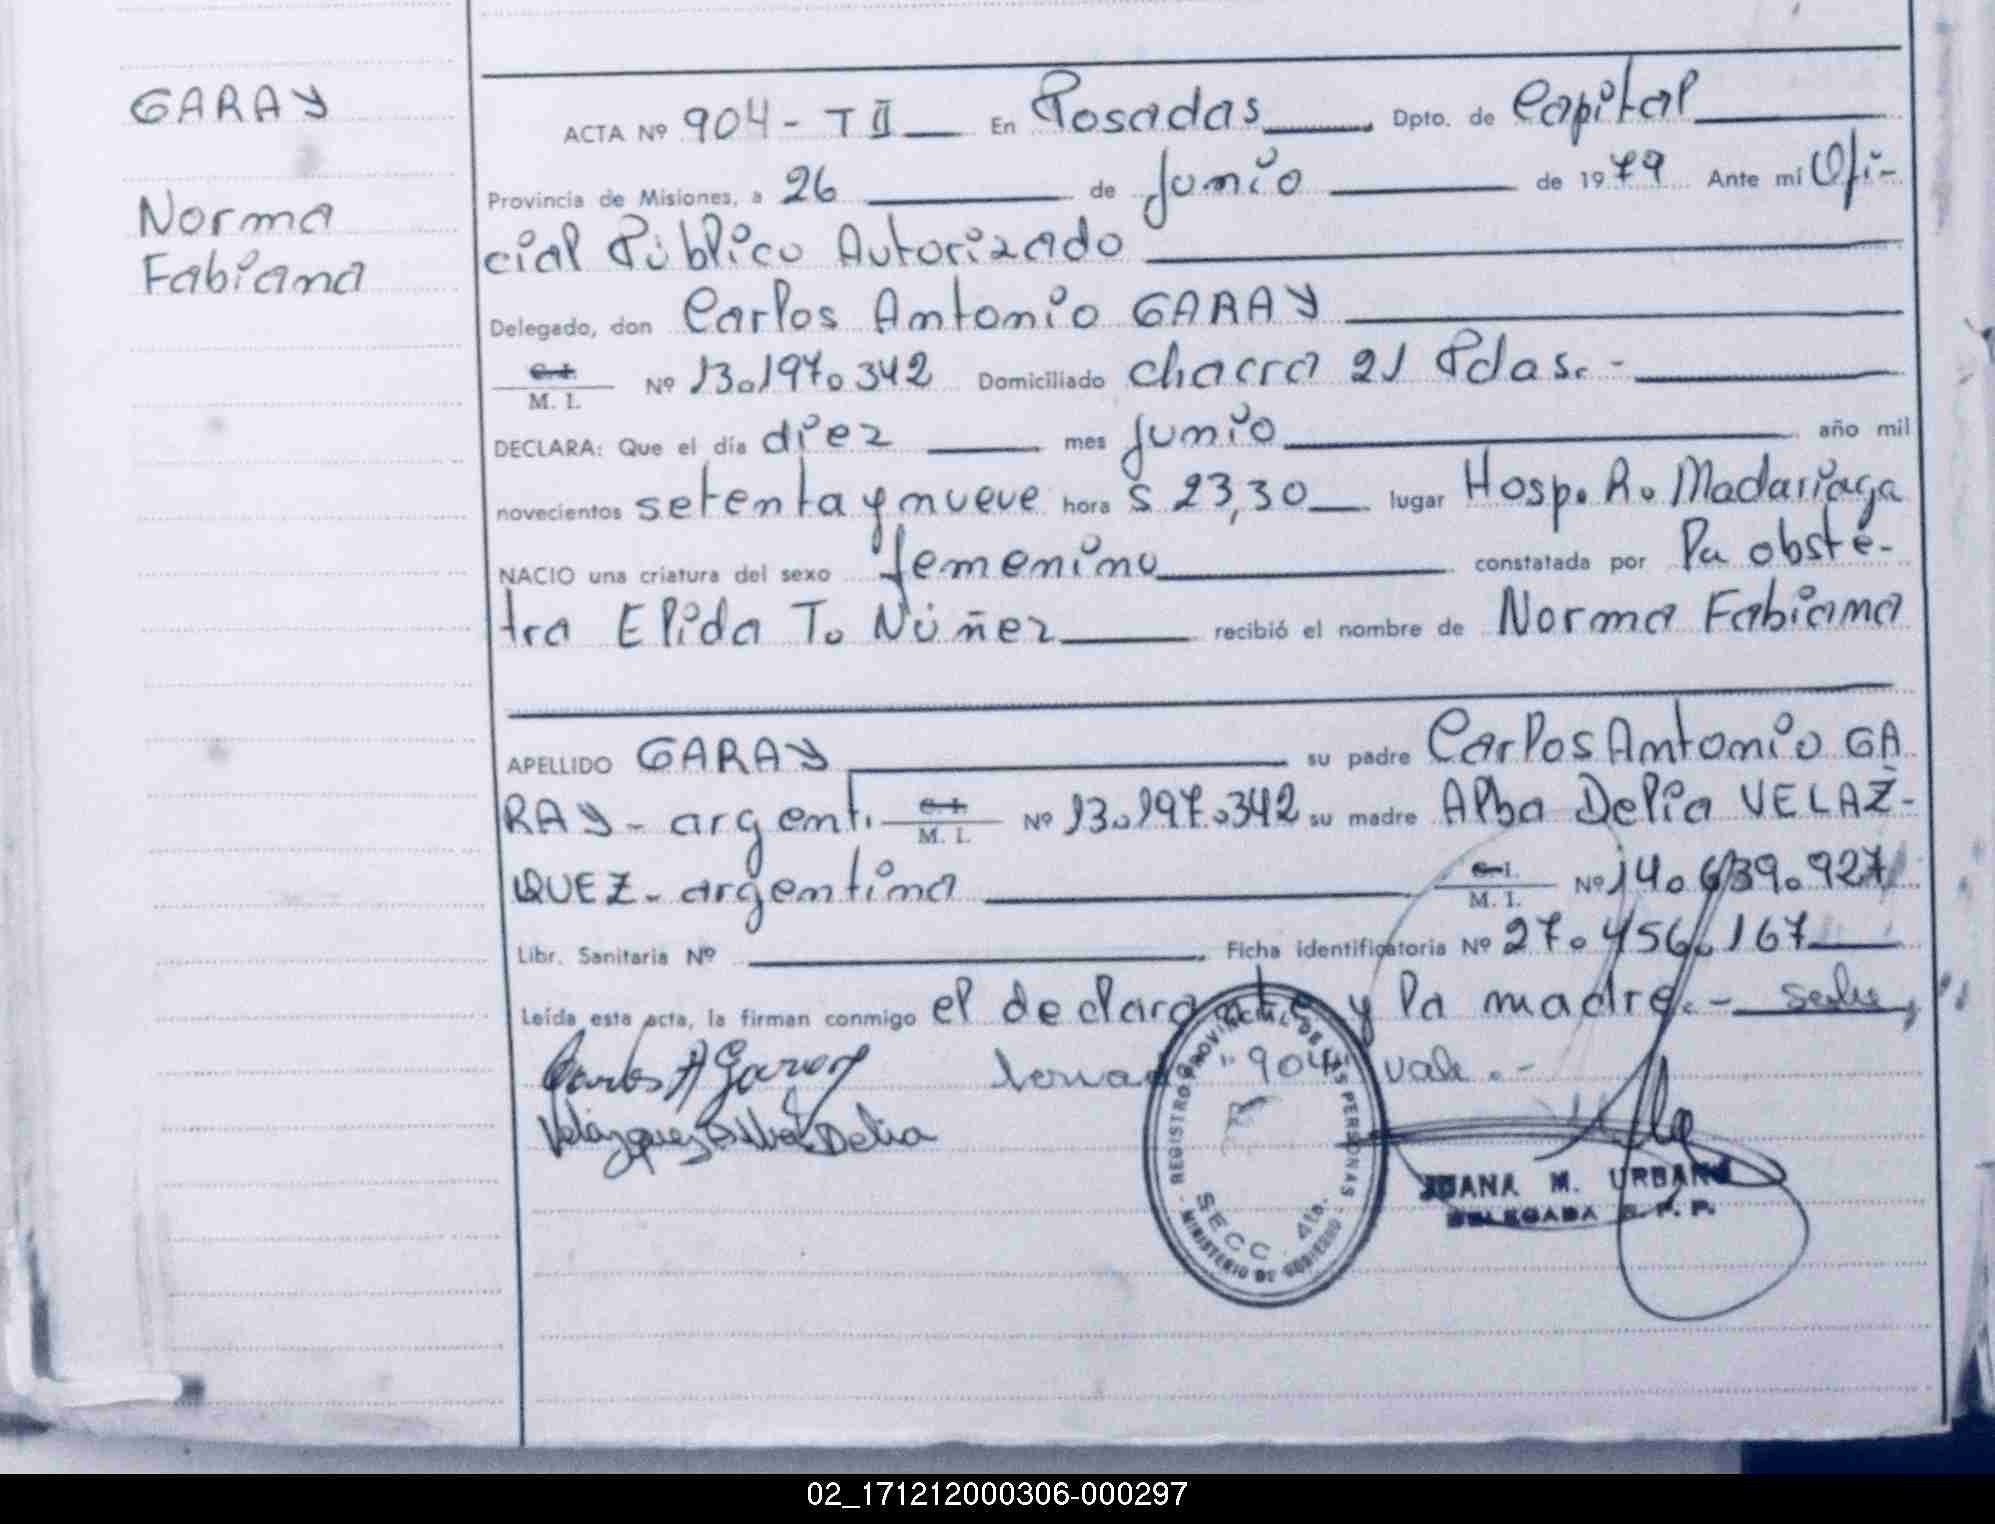 GARAY
Norma
Fabiana
ACTA Nº 904 - T II En Posadas Dpto. de Capital
Provincia de Misiones, a 26 de Junio de 1979 Ante mí Ofi-
cial Público Autorizado
Delegado, don Carlos Antonio GARAY
C.I. M. I. Nº 13.197.342 Domiciliado chacra 21 Pdas. -
DECLARA: Que el día diez mes Junio año mil
novecientos setenta y nueve hora s 23,30 lugar Hosp. R. Madariaga
NACIO una criatura del sexo femenino constatada por la obsté-
tra Elida T. Núñez recibió el nombre de Norma Fabiana
APELLIDO GARAY su padre Carlos Antonio GA
RAY - argent. C.I. M. I. Nº 13.197.342 su madre Alba Delia VELAZ-
QUEZ - argentina C.I. M. I. Nº 14.639.927
Libr. Sanitaria Nº Ficha identificatoria Nº 27.456.167
Leída esta acta, la firman conmigo el declarante y la madre. -
Carlos A Garay "904" vale . -
Velázquez Alba Delia
REGISTRO PROVINCIAL DE LAS PERSONAS
SECC. 4ta.
MINISTERIO DE GOBIERNO
JUANA M. URBANO
DELEGADA R. P. P.
02_171212000306-000297